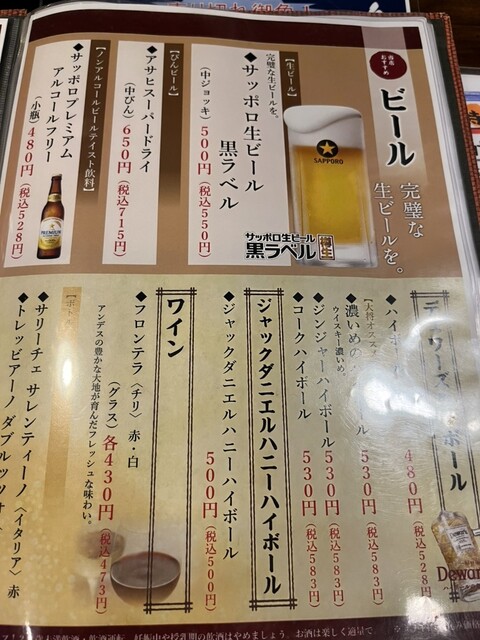 当店
おすすめ
ビール
完璧な
生ビールを。
SAPPORO
サッポロ生ビール
黒ラベル
樽生
【生ビール】
完璧な生ビールを。
◆サッポロ生ビール
黒ラベル
(中ジョッキ) 500円(税込550円)
【びんビール】
◆アサヒスーパードライ
(中びん) 650円(税込715円)
【ノンアルコールビールテイスト飲料】
◆サッポロプレミアム
アルコールフリー
(小瓶) 480円(税込528円)
PREMIUM
デュワーズ
ボール
Dewar
◆ハイボ
480円(税込528円)
【大将オスス
◆濃いめの
ール
530円(税込583円)
ウイスキー濃いめ。
◆ジンジャーハイボール
530円(税込583円)
◆コークハイボール
530円(税込583円)
ジャックダニエルハニーハイボール
◆ジャックダニエルハニーハイボール
500円(税込500円)
ワイン
◆フロンテラ〈チリ〉赤・白
(グラス) 各430円(税込473円)
アンデスの豊かな大地が育んだフレッシュな味わい。
【ボト
◆サリーチェ サレンティーノ〈イタリア〉赤
◆トレッビアーノ ダブルッツォ
飲酒運転
妊娠中や授乳期の飲酒はやめましょう
お酒は楽しく適量で